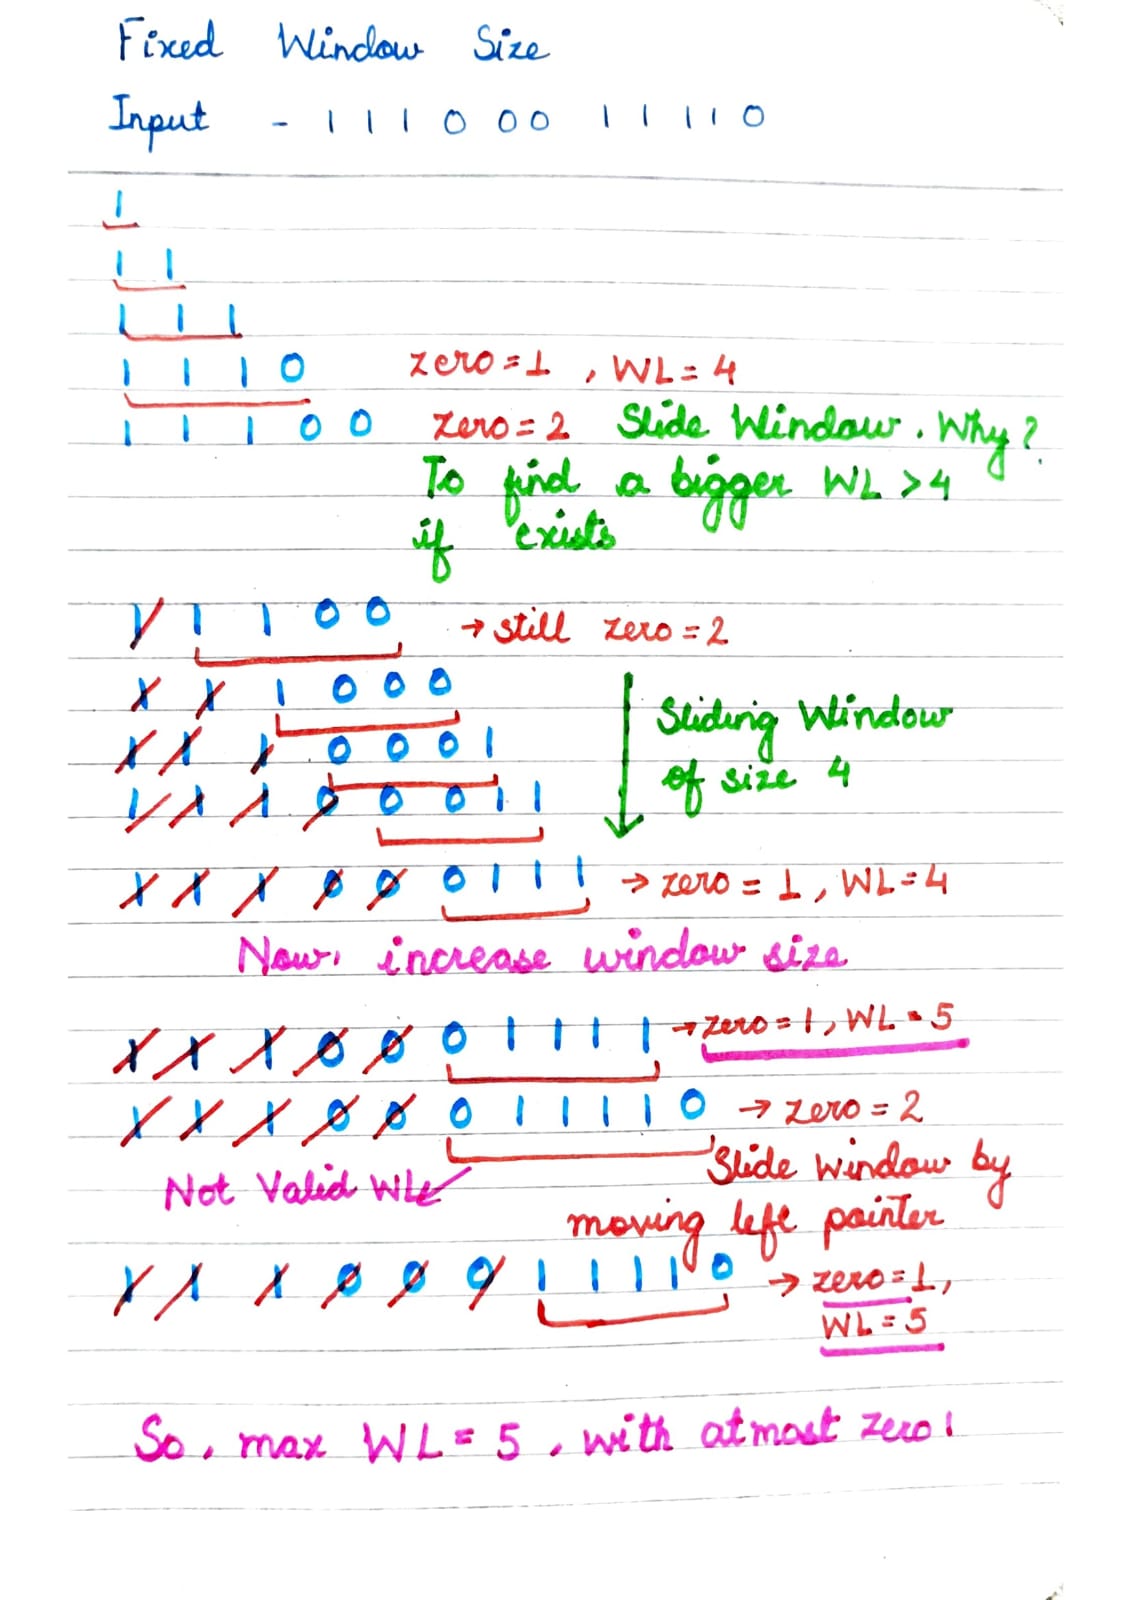 Fixed Window Size
Input - 1 1 1 0 0 0 1 1 1 1 0
1
1 1
1 1 1
1 1 1 0 zero = 1 , WL = 4
1 1 1 0 0 zero = 2 Slide Window. Why?
To find a bigger WL > 4
if exists
1 1 1 0 0 → still zero = 2
1 1 1 0 0 0
1 1 1 0 0 0 1
Sliding Window
of size 4
1 1 1 0 0 0 1 1
1 1 1 0 0 0 1 1 1 → zero = 1 , WL = 4
Now, increase window size
1 1 1 0 0 0 1 1 1 1 → zero = 1, WL = 5
1 1 1 0 0 0 1 1 1 1 0 → zero = 2
Slide window by
Not Valid WL
moving left pointer
1 1 1 0 0 0 1 1 1 1 0 → zero = 1,
WL = 5
So, max WL = 5 , with atmost zero 1